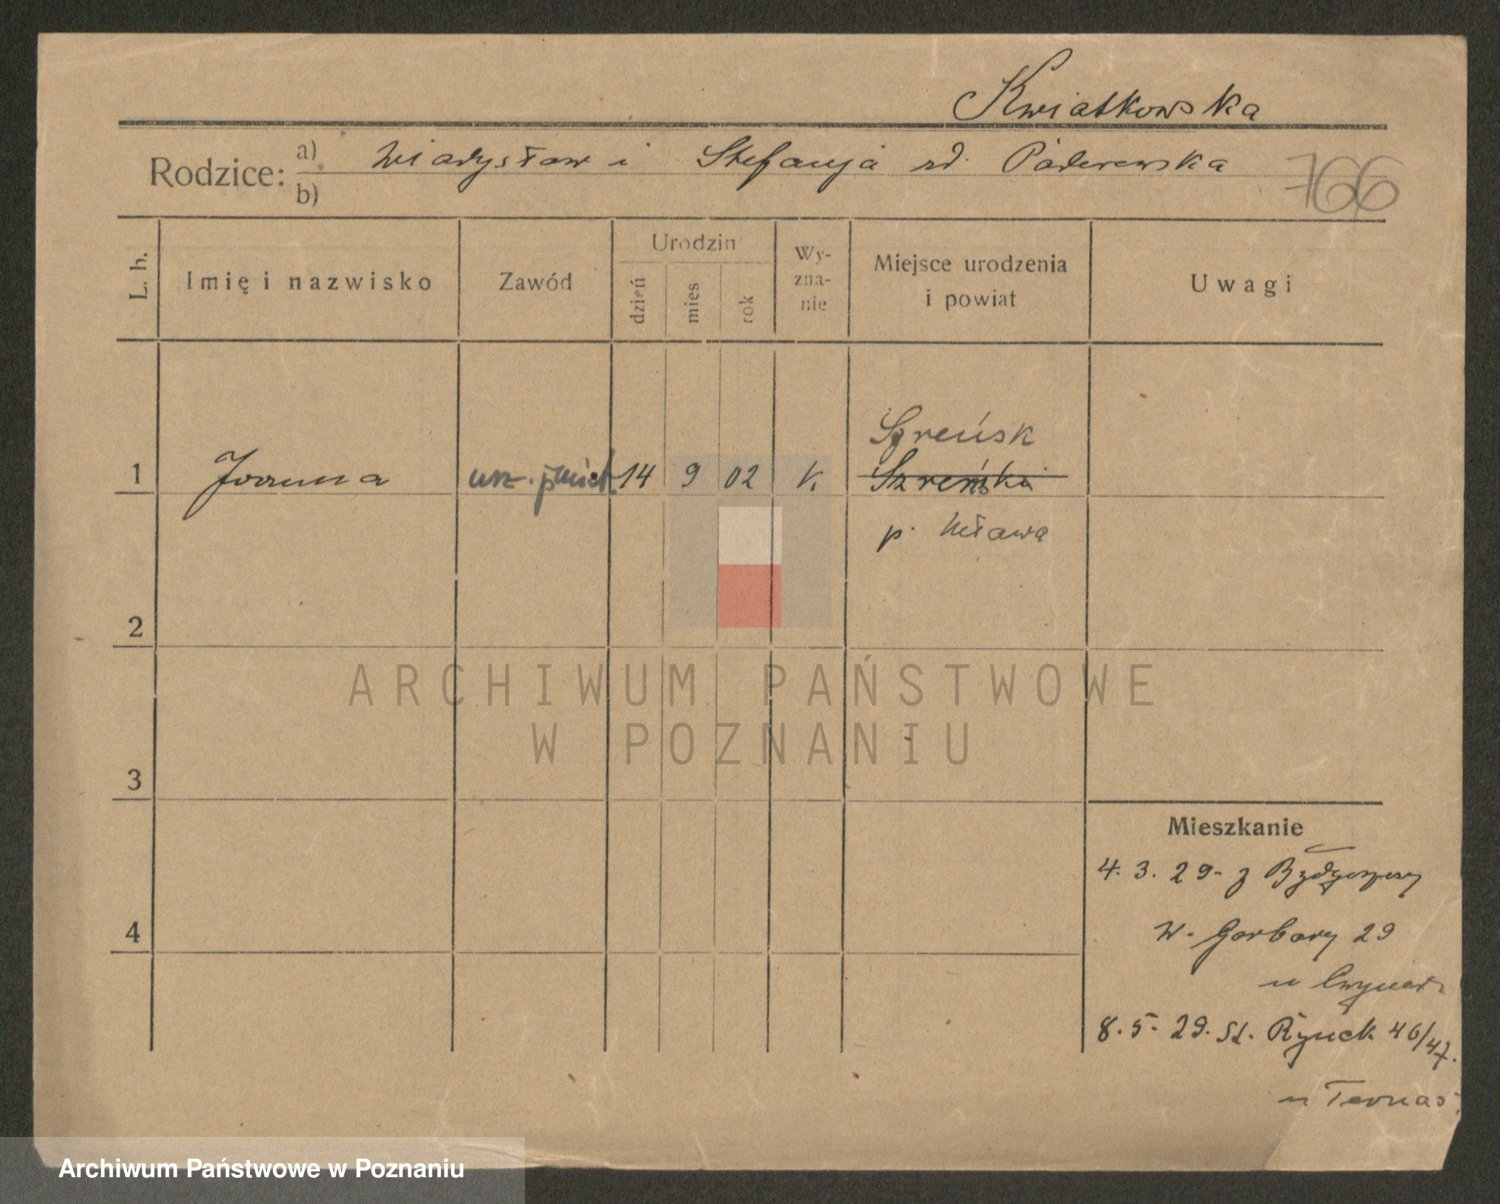 Kwiatkowska
Rodzice: a) Władysław i Stefanja rd. Paderewska
b)
766
L. b.
Imię i nazwisko
Zawód
Urodzin
dzień
mies
rok
Wy-
zna-
nie
Miejsce urodzenia
i powiat
Uwagi
Szreńsk
1 Joanna urz. 14 9 02 k. Szreńska
p. Mława
2
ARCHIWUM PAŃSTWOWE
W POZNANIU
3
Mieszkanie
4. 3. 29. z Bydgoszczy
4
W. Garbary 29
u
8. 5. 29. St. Rynek 46/47.
u Ternas
Archiwum Państwowe w Poznaniu